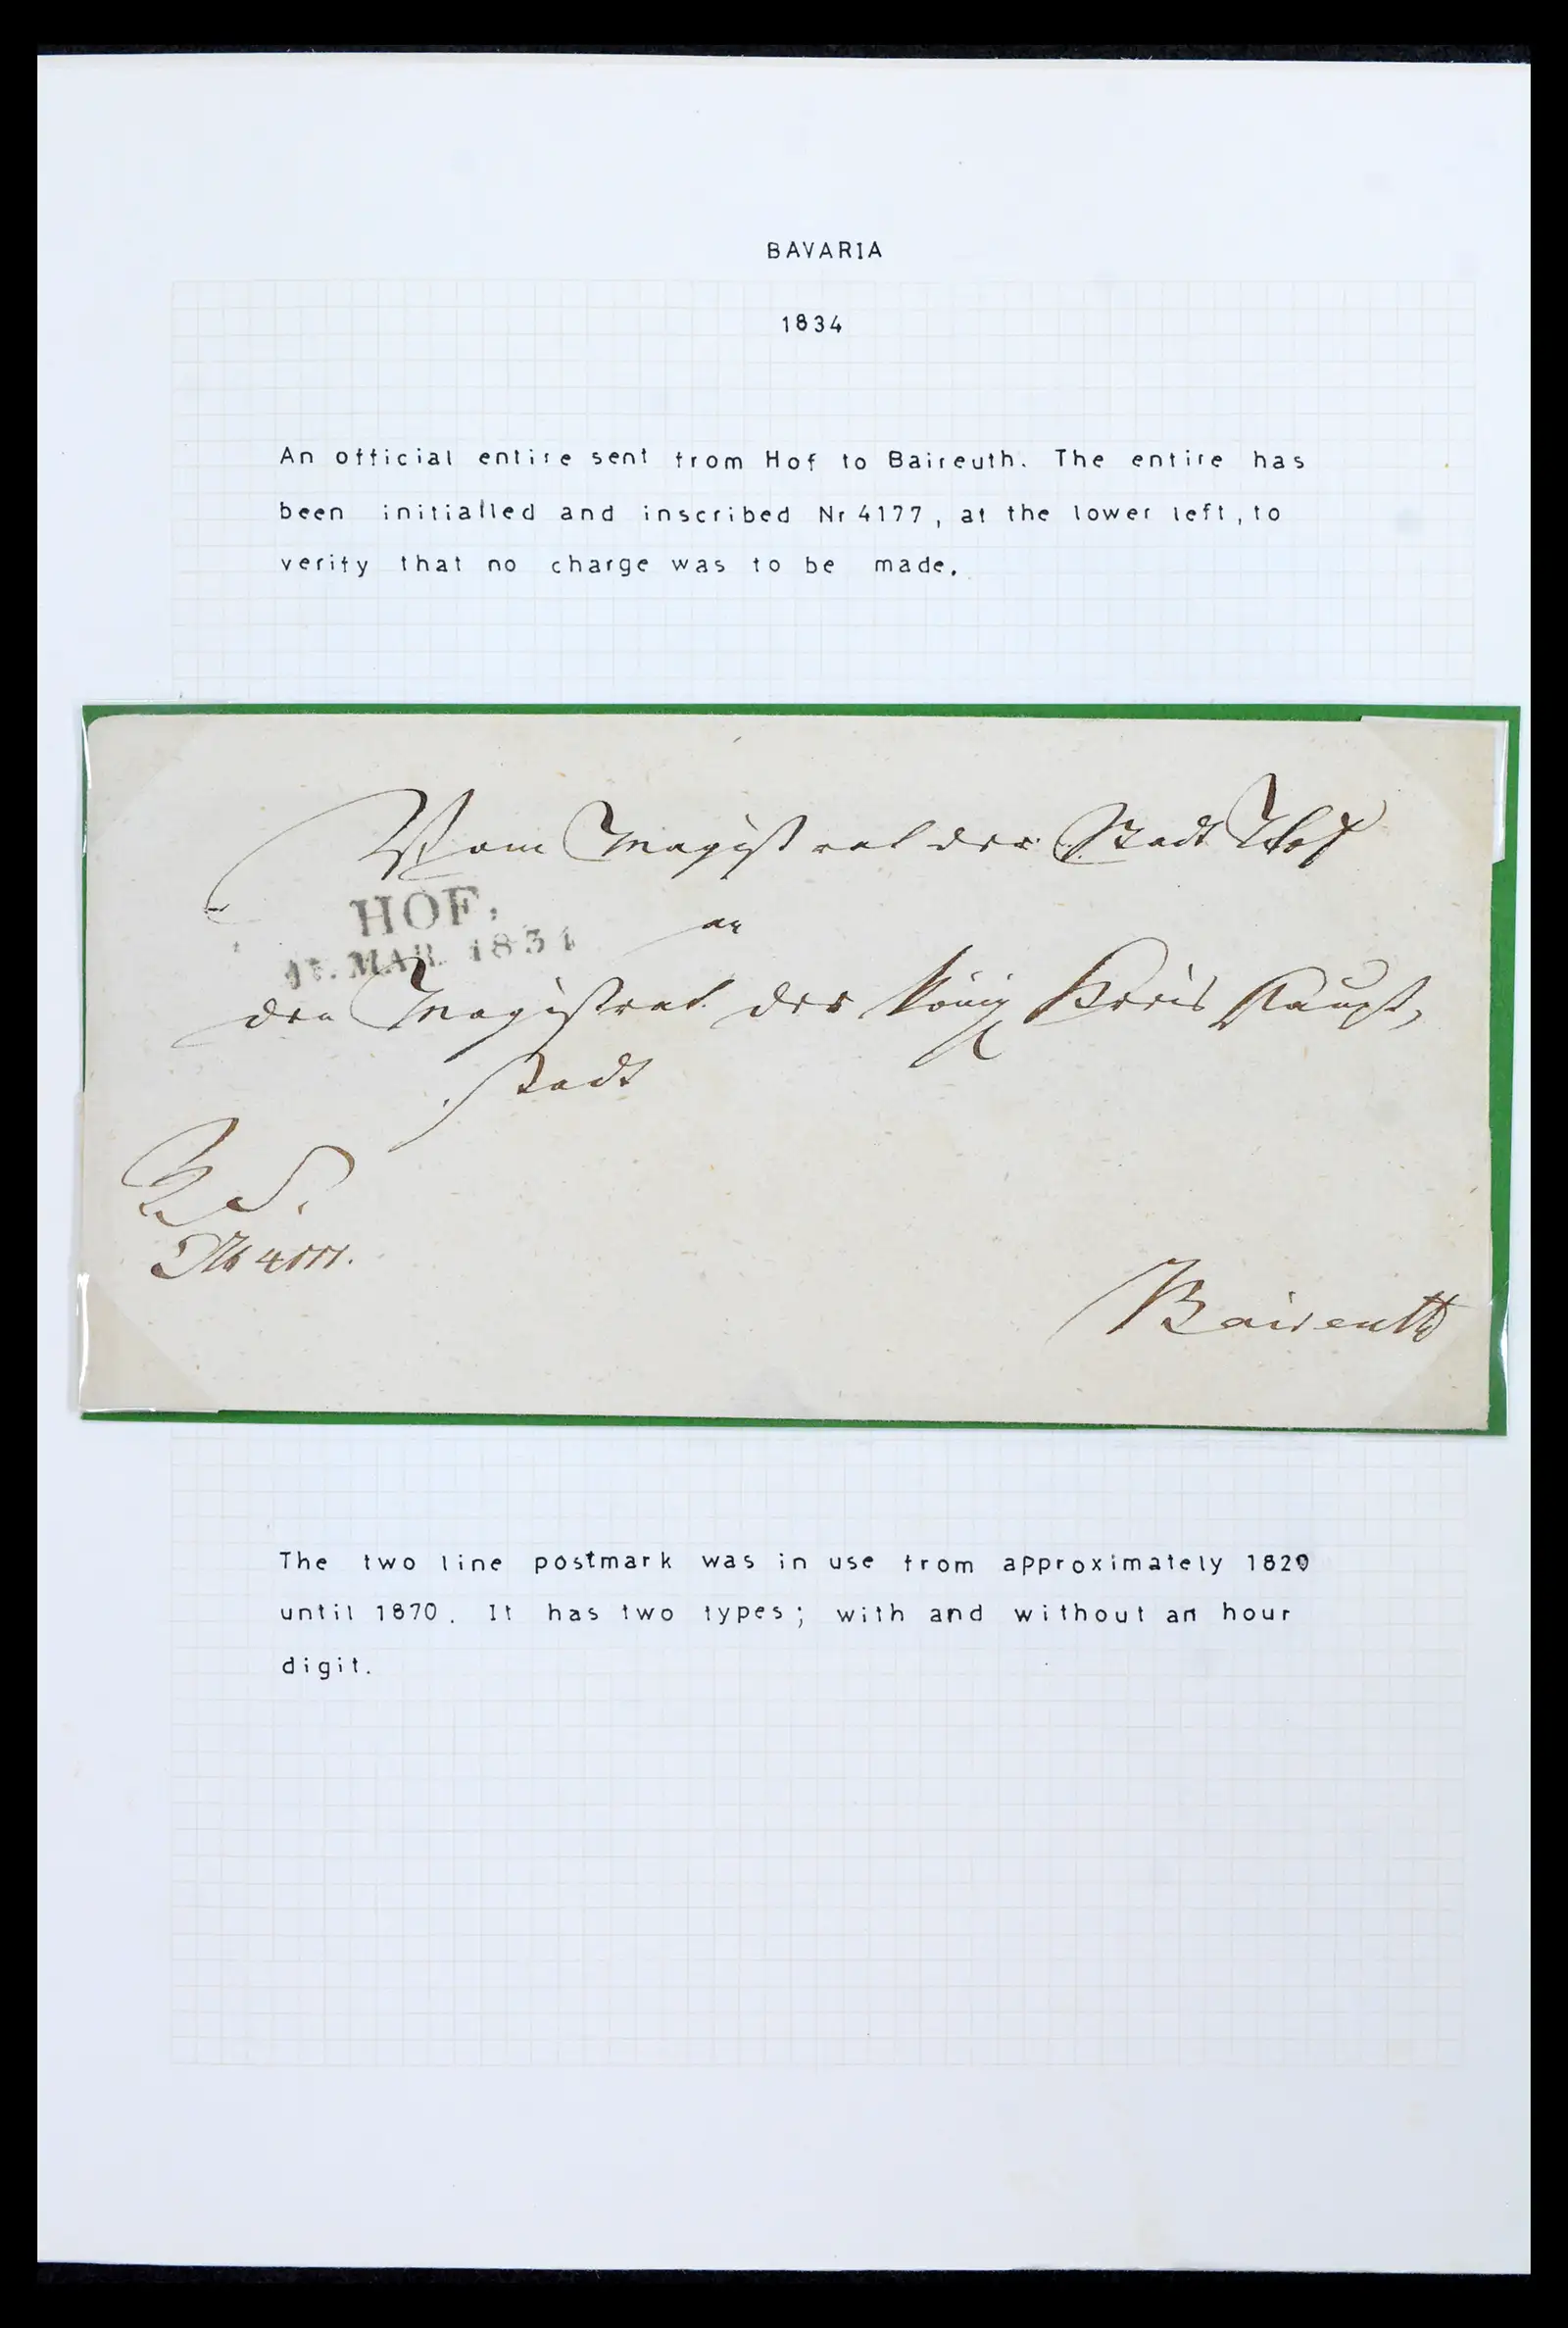 BAVARIA
1834
An official entire sent from Hof to Baireuth. The entire has
been initialled and inscribed Nr 4177, at the lower left, to
verify that no charge was to be made.
Vom Magistrat der Stadt Hof
HOF.
MAR. 1834
an
den Magistrat der König Kreis Haupt,
stadt
Baireuth
The two line postmark was in use from approximately 1820
until 1870. It has two types; with and without an hour
digit.